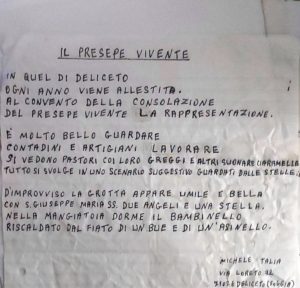 IL PRESEPE VIVENTE
IN QUEL DI DELICETO
OGNI ANNO VIENE ALLESTITA.
AL CONVENTO DELLA CONSOLAZIONE
DEL PRESEPE VIVENTE LA RAPPRESENTAZIONE.
È MOLTO BELLO GUARDARE
CONTADINI E ARTIGIANI LAVORARE
SI VEDONO PASTORI COI LORO GREGGI E ALTRI SUONARE CIARAMELLA
TUTTO SI SVOLGE IN UNO SCENARIO SUGGESTIVO GUARDATI DALLE STELLE.
D'IMPROVVISO LA GROTTA APPARE UMILE E BELLA
CON S. GIUSEPPE MARIA SS. DUE ANGELI E UNA STELLA.
NELLA MANGIATOIA DORME IL BAMBINELLO
RISCALDATO DAL FIATO DI UN BUE E DI UN'ASINELLO.
MICHELE TALIA
VIA LORETO
DELICETO (FOGGIA)